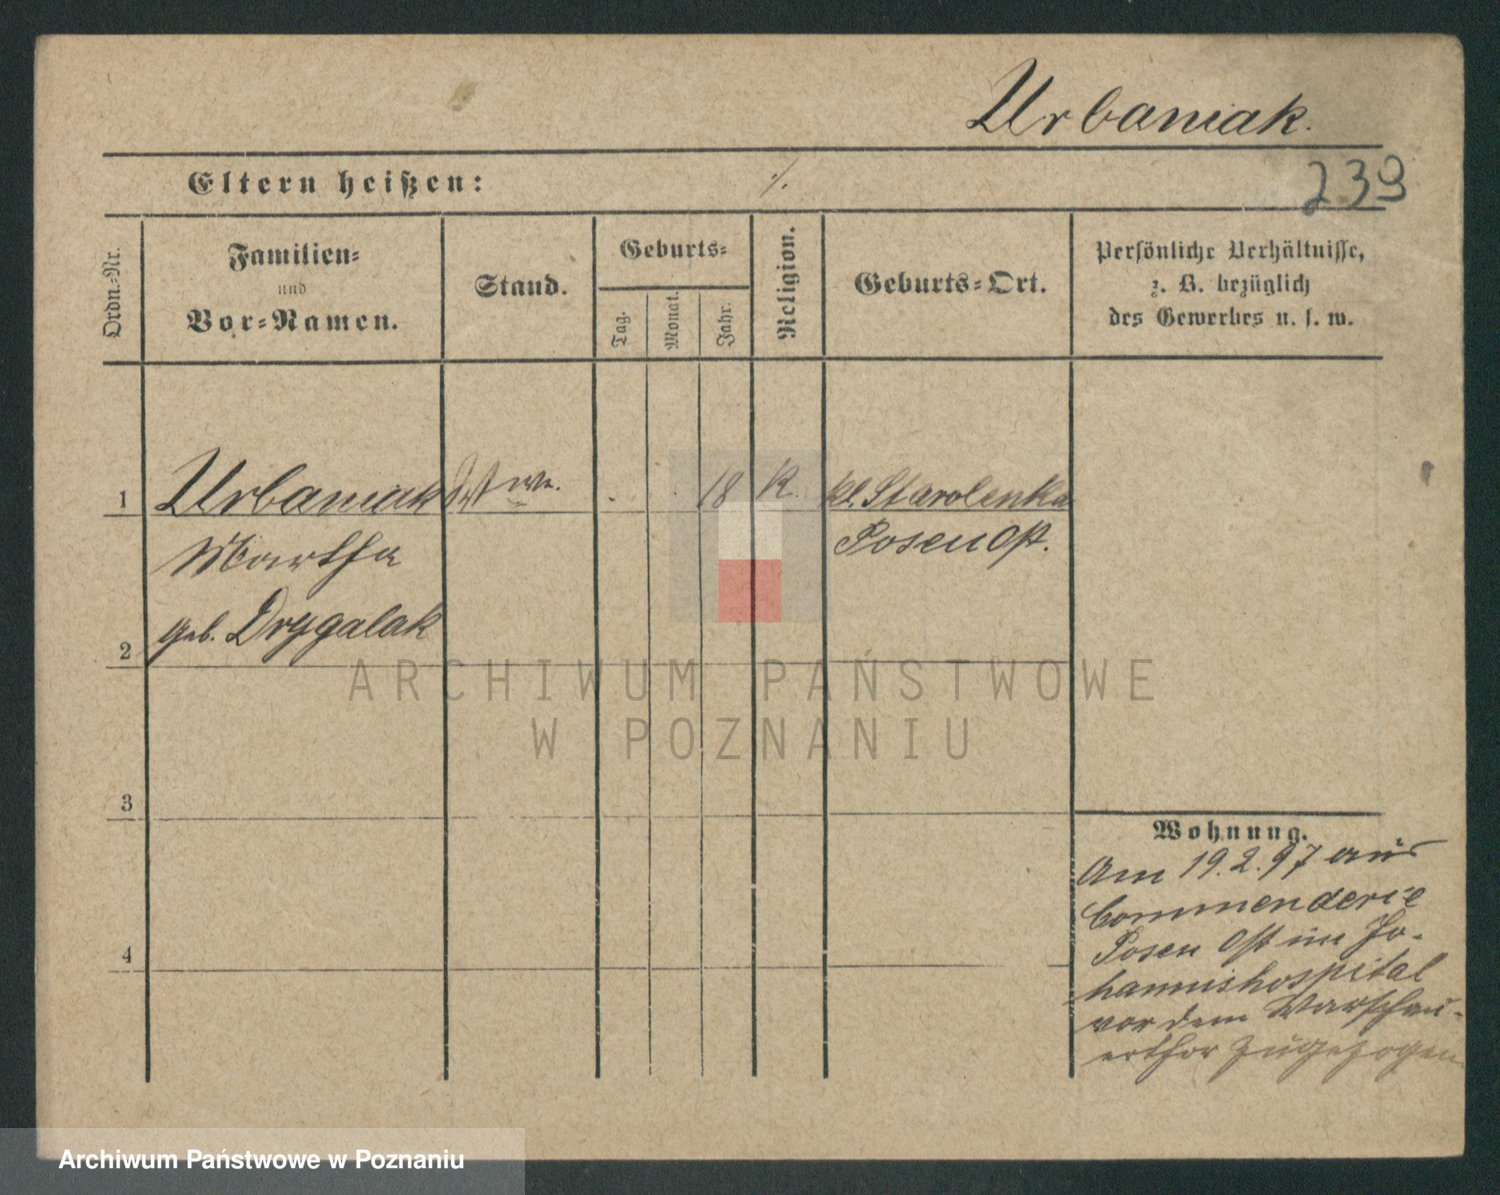 Urbaniak.
239
Eltern heißen: ./.
Ordn.-Nr.
Familien-
und
Vor-Namen.
Stand.
Geburts-
Tag.
Monat.
Jahr.
Religion.
Geburts-Ort.
Persönliche Verhältnisse,
z. B. bezüglich
des Gewerbes u. s. w.
1 Urbaniak Wwe. 18 K. kl. Starolenka
Martha Posen Ost.
geb. Drygalak
2
3
4
Wohnung.
Am 19.2.97 aus
Commenderie
Posen Ost im Jo-
hannishospital
vor dem Warschau-
erthor zugezogen
ARCHIWUM PAŃSTWOWE
W POZNANIU
Archiwum Państwowe w Poznaniu